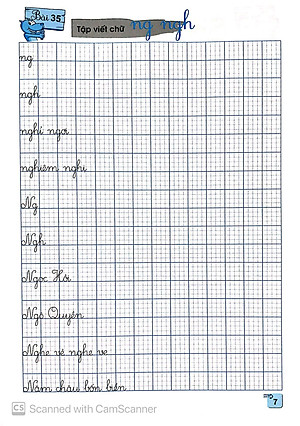 Bài 35
Tập viết chữ ng ngh
ng
ngh
nghỉ ngơi
nghiêm nghị
Ng
Ngh
Ngọc Hồi
Ngô Quyền
Nghe vẻ nghe ve
Năm châu bốn biển
7
CS Scanned with CamScanner